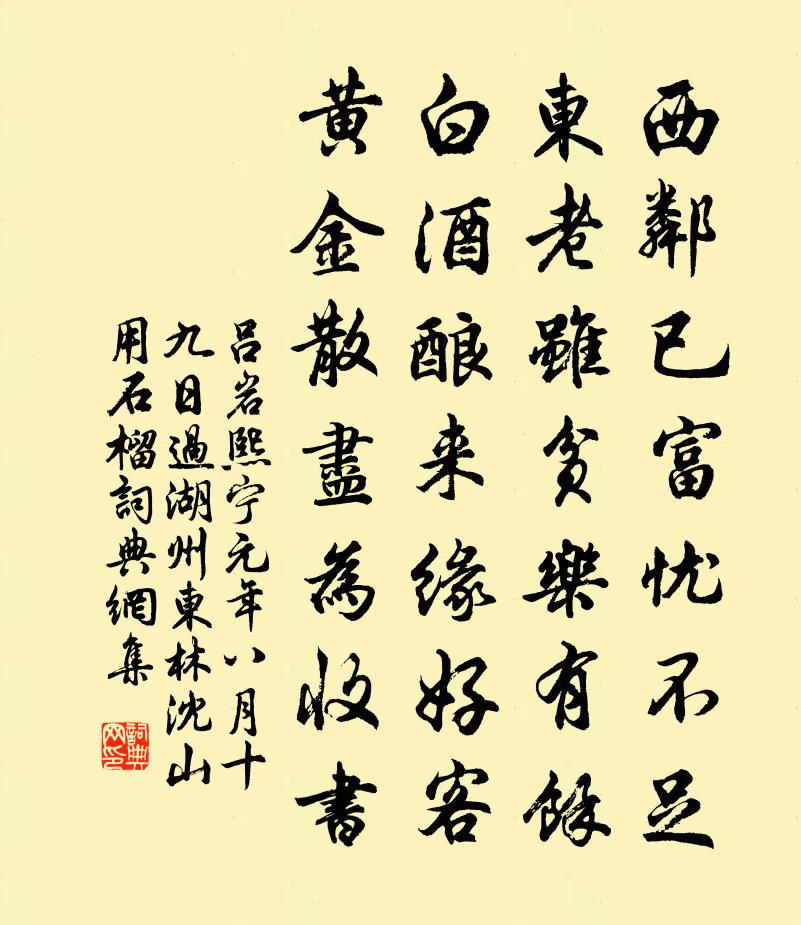 西鄰已富忧不足
東老雖貧樂有餘
白酒酿来緣好客
黃金散盡為收书
吕岩熙宁元年八月十
九日過湖州東林沈山
用石榴詞典網集
詞典网印